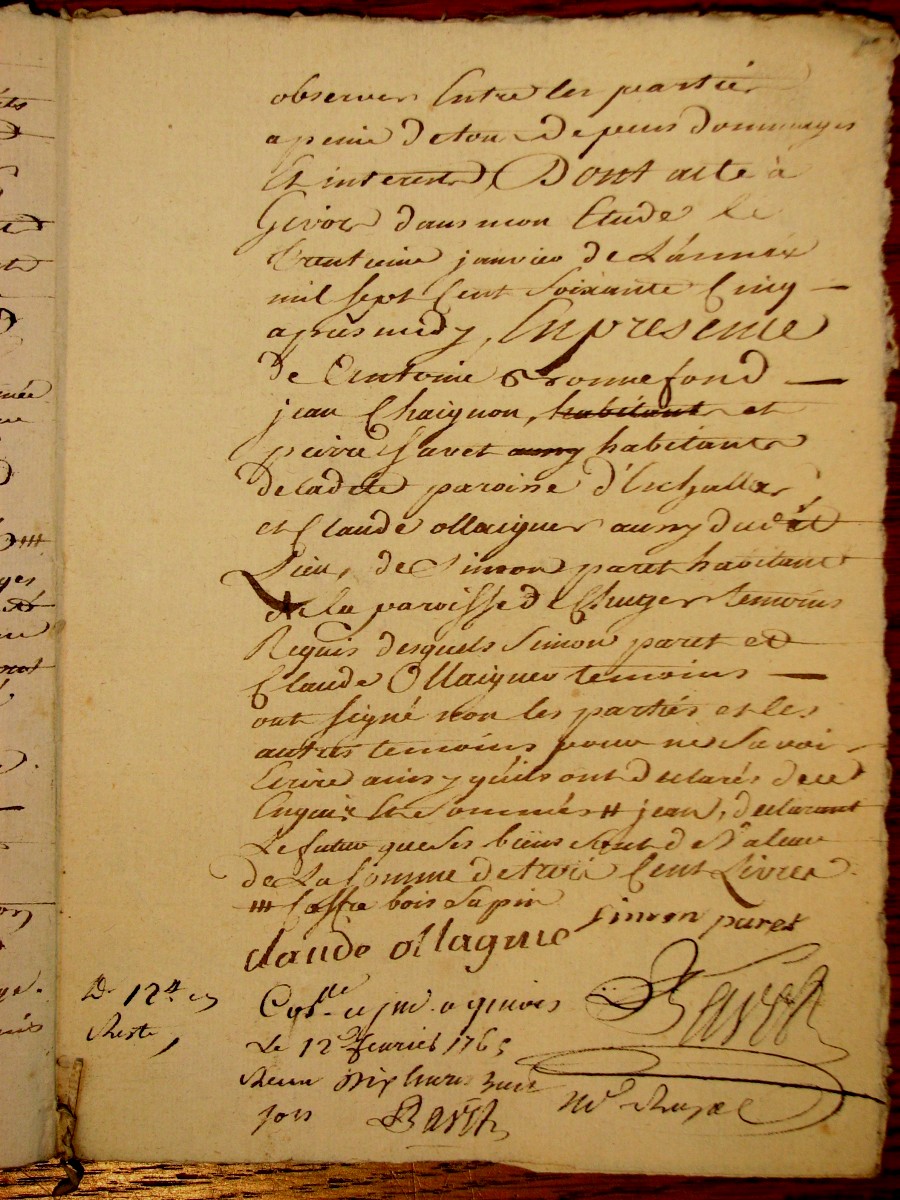 observer Entre les partiés
a peine de tous depens dommages
Et interests, Dont acte à
Givors dans mon Etude le
trentieme janvier de L'année
mil sept Cent soixante Cinq —
apres midy, En presence
de Antoine Bonnefond —
jean Chaignon, habitants et
peirre favet aussy habitants
de ladite paroisse d'Echallas
et Claude ollaigner aussy dudit
Lieu, de Simon paret habitant
de la paroisse de Chuyer temoins
Requis desquels Simon paret et
Claude Ollaigner temoins —
ont signé non les partiés et les
autres temoins pour ne savoir
Ecrire ainsy qu'ils ont declarés de ce
Enquis Et Sommés # jean, declarant
Le futur que ses biens sont de Valeur
de La Somme de trois Cent Livres.
Coffre bois sapin
claude ollagnie Simon paret
12
Reste,
Con.lle a givors
Le 12e fevrier 1765
Receu dix livres huit
sols